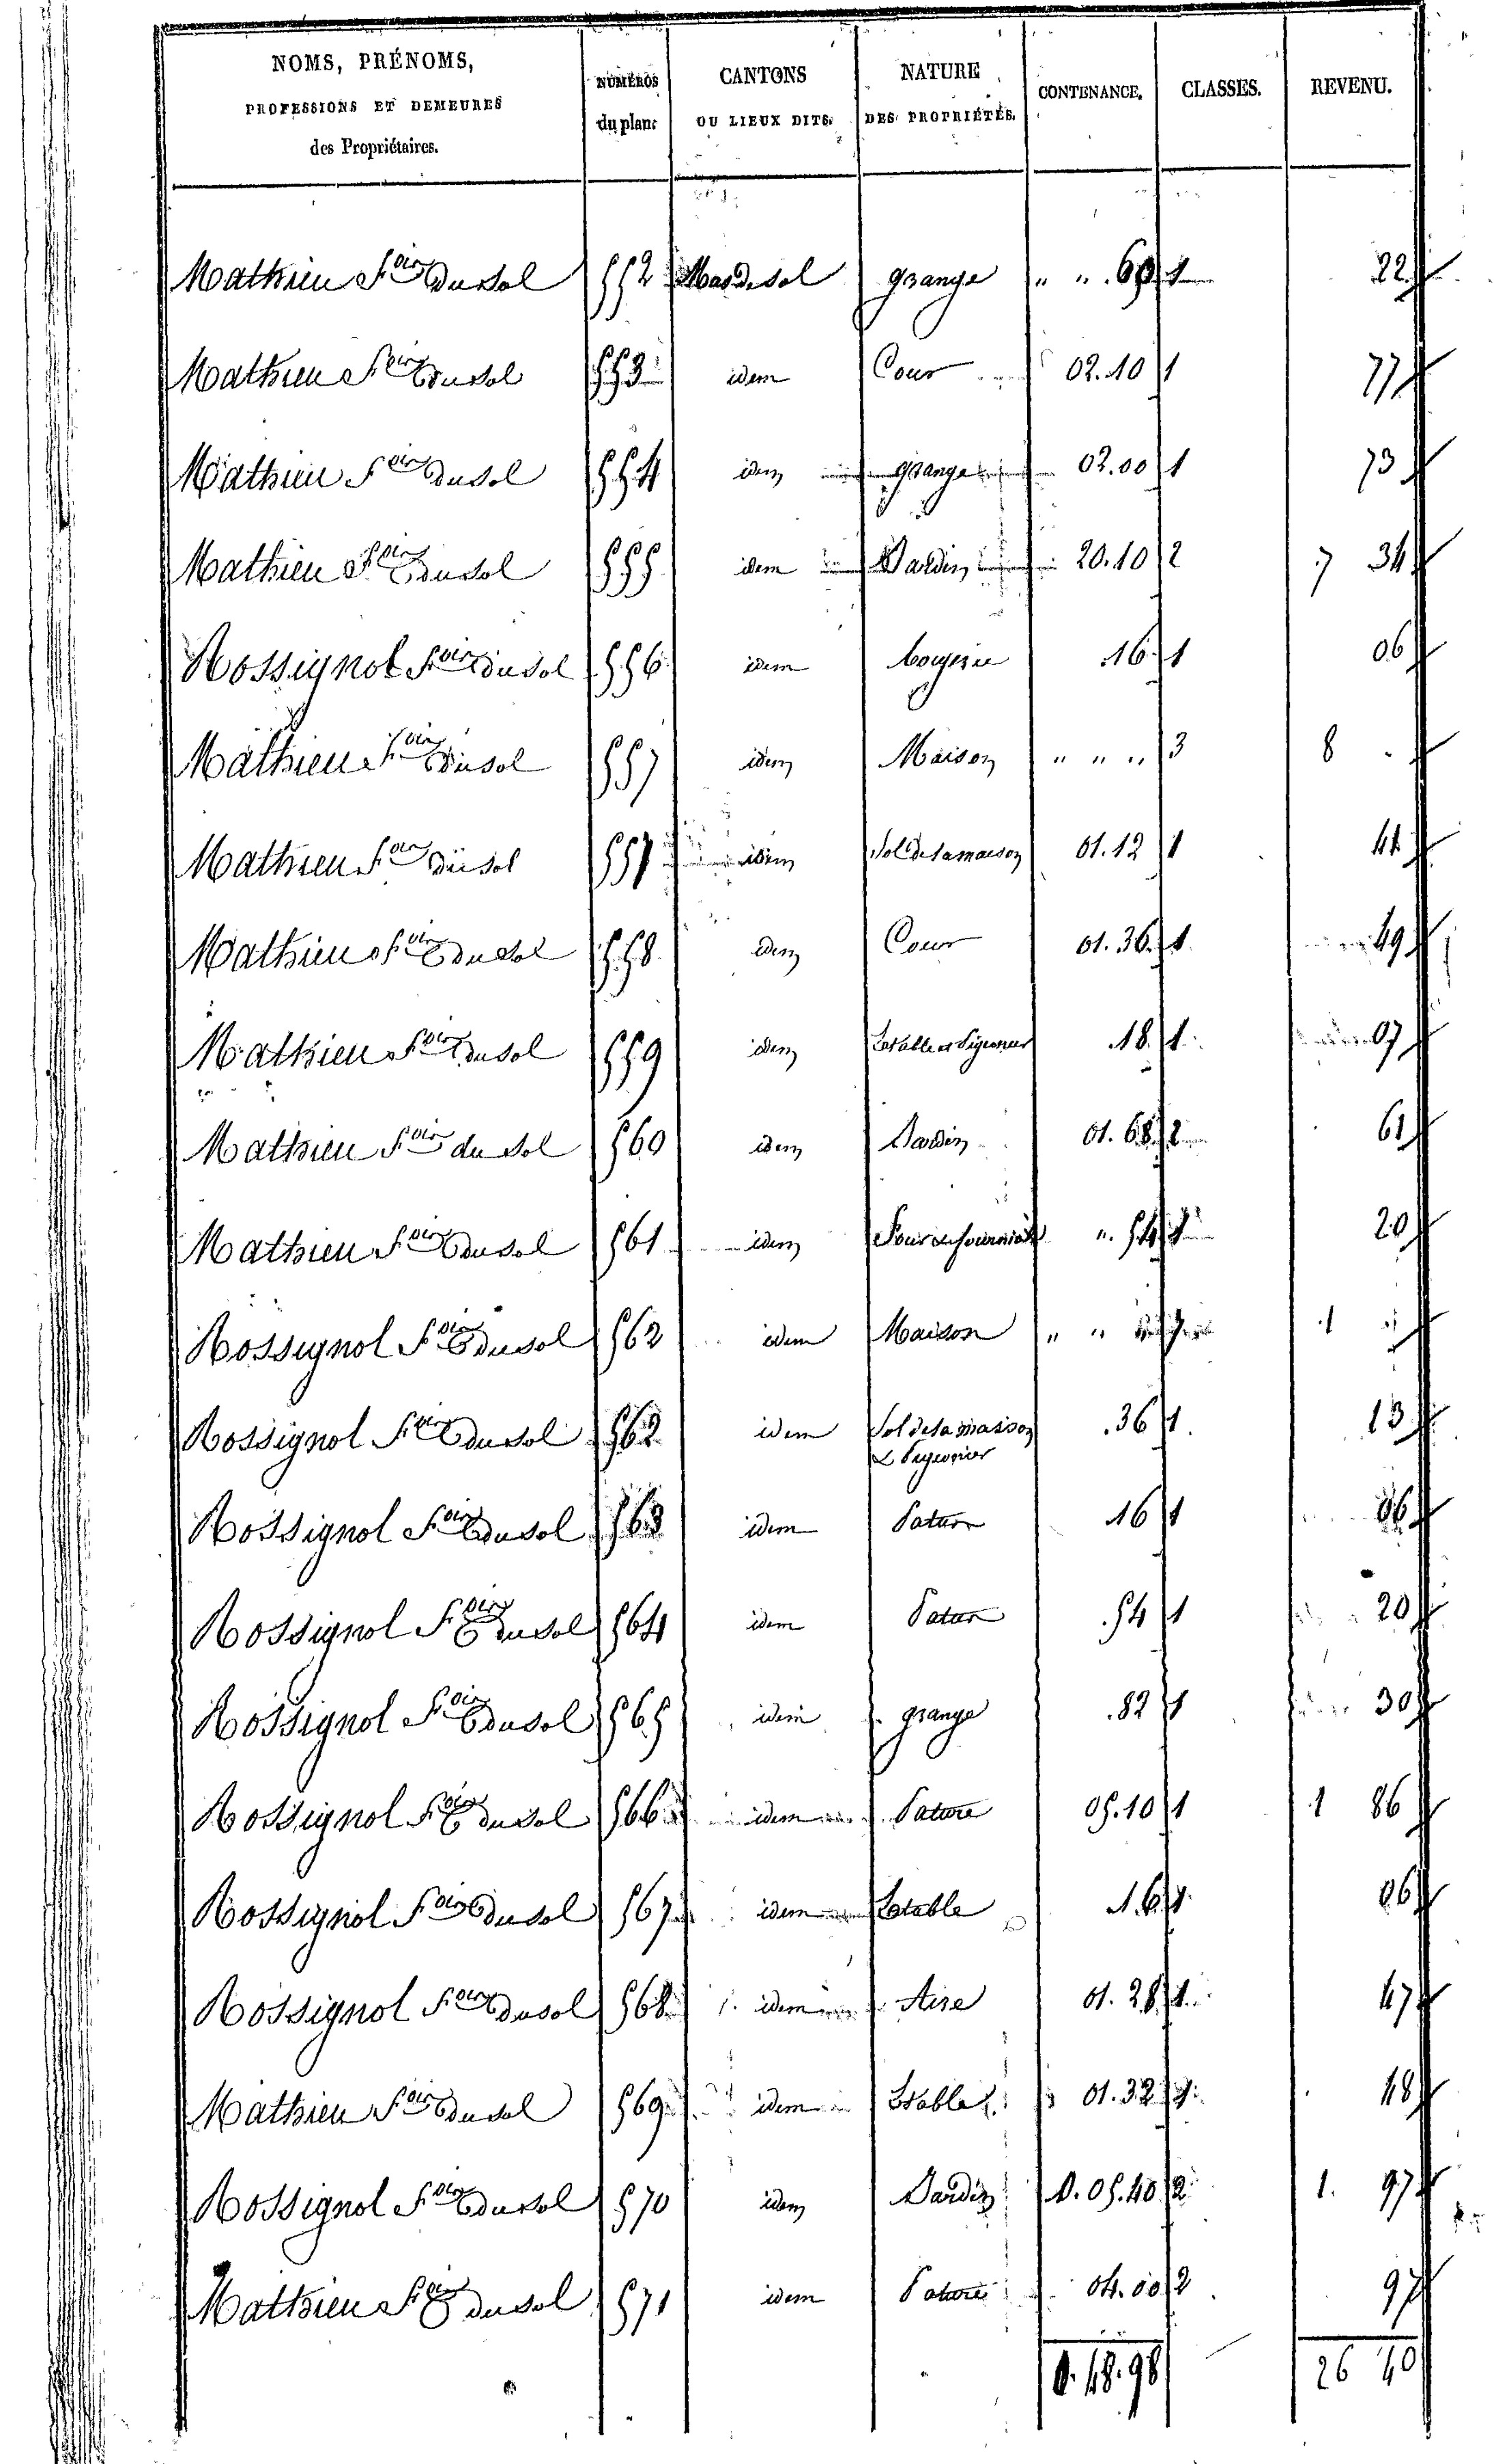 NOMS, PRÉNOMS,
PROFESSIONS ET DEMEURES
des Propriétaires.
NUMÉROS
du plan.
CANTONS
OU LIEUX DITS.
NATURE
DES PROPRIÉTÉS.
CONTENANCE.
CLASSES.
REVENU.
Mathieu fois Dusol 552 Mas de sol grange " " 60 1 22
Mathieu fois Dusol 553 idem Cour 02.10 1 77
Mathieu fois Dusol 554 idem grange 02.00 1 73
Mathieu fois Dusol 555 idem Jardin 20.10 2 7 34
Rossignol fois Dusol 556 idem 16 1 06
Mathieu fois Dusol 557 idem Maison " " " 3 8
Mathieu fois Dusol 557 idem Sol de la maison 01.12 1 41
Mathieu fois Dusol 558 idem Cour 01.36 1 49
Mathieu fois Dusol 559 idem Etable et Pigeonier 18 1 07
Mathieu fois du sol 560 idem Jardin 01.68 2 61
Mathieu fois Dusol 561 idem " 54 1 20
Rossignol fois Dusol 562 idem Maison " " 1
Rossignol fois Dusol 562 idem Sol de la maison 36 1 13
& Pigeonier
Rossignol fois Dusol 563 idem Patur 16 1 06
Rossignol fois Dusol 564 idem Patur 54 1 20
Rossignol fois Dusol 565 idem grange 82 1 30
Rossignol fois Dusol 566 idem Pature 05.10 1 1 86
Rossignol fois Dusol 567 idem Etable 16 1 06
Rossignol fois Dusol 568 idem Aire 01.28 1 47
Mathieu fois Dusol 569 idem Etable 01.32 1 48
Rossignol fois Dusol 570 idem Jardin 0.05.40 2 1. 97
Mathieu fois Dusol 571 idem Pature 04.00 2 97
0.48.98 26 40